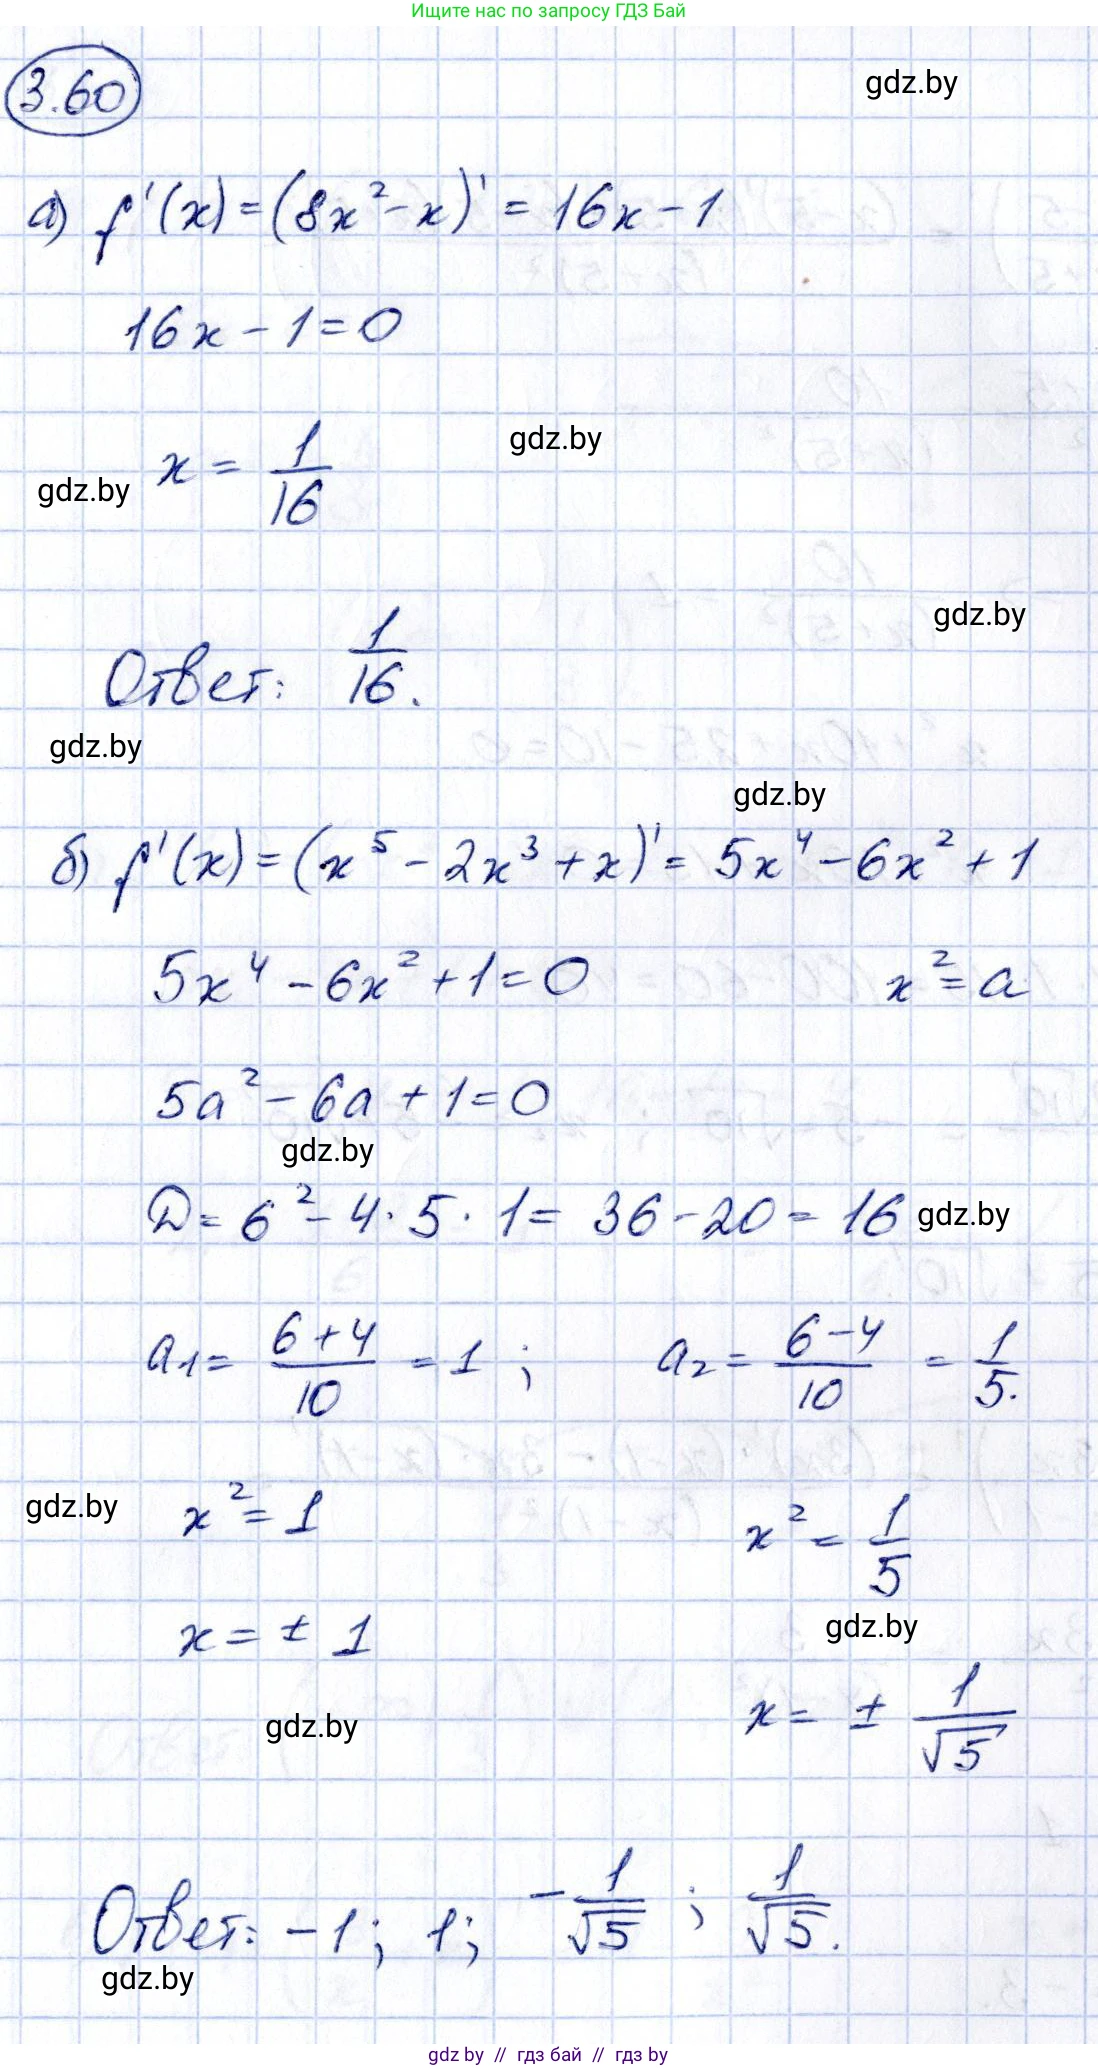 Ищите нас по запросу ГДЗ Бай
3.60
gdz.by
а) f'(x) = (8x² - x)' = 16x - 1
16x - 1 = 0
gdz.by
x = 1/16
gdz.by
gdz.by
Ответ: 1/16.
gdz.by
gdz.by
б) f'(x) = (x⁵ - 2x³ + x)' = 5x⁴ - 6x² + 1
5x⁴ - 6x² + 1 = 0 x² = a
5a² - 6a + 1 = 0
gdz.by
D = 6² - 4 · 5 · 1 = 36 - 20 = 16 gdz.by
a₁ = (6 + 4)/10 = 1 ; a₂ = (6 - 4)/10 = 1/5.
gdz.by
x² = 1 x² = 1/5
gdz.by
x = ± 1
x = ± 1/√5
gdz.by
Ответ: -1; 1; -1/√5 ; 1/√5.
gdz.by
gdz by // гдз бай // гдз by